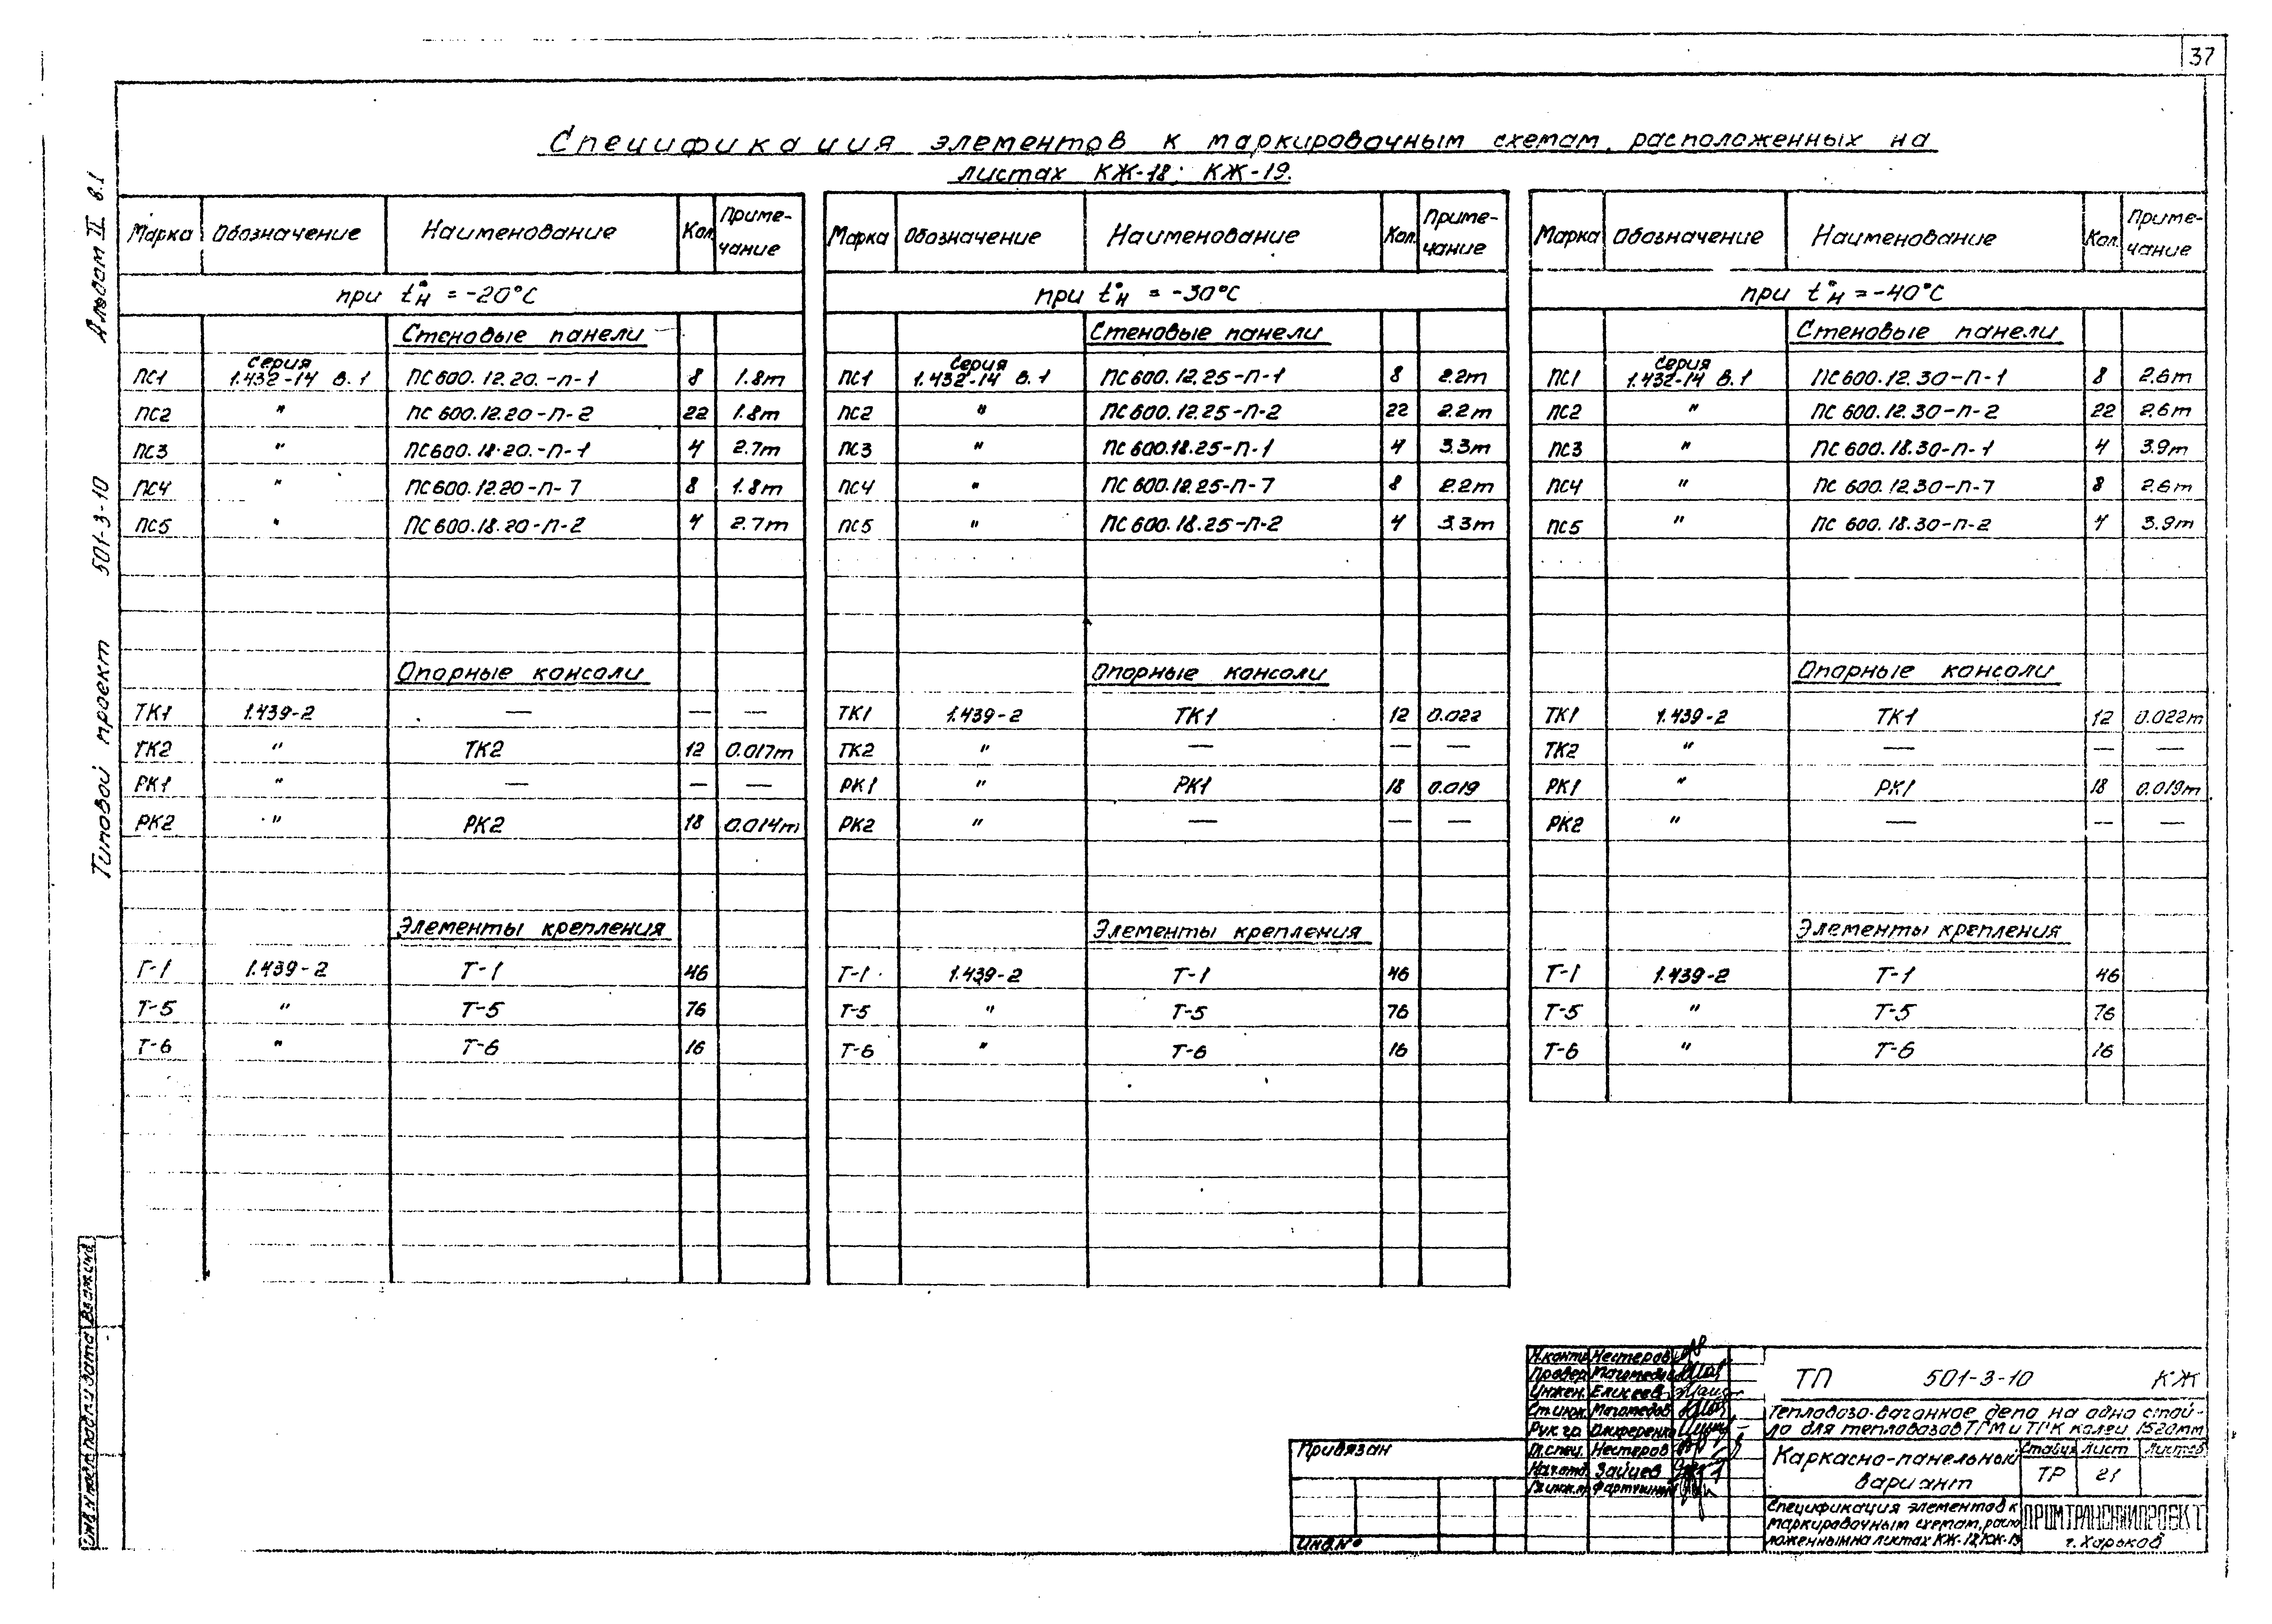 37
Спецификация элементов к маркировочным схемам, расположенных на
листах КЖ-18; КЖ-19.
Альбом II в.1
Типовой проект 501-3-10
Марка Обозначение Наименование Кол. Приме-
чание
при t°н = -20°С
Стеновые панели
ПС1 Серия 1.432-14 в.1 ПС600.12.20.-п-1 8 1.8т
ПС2 " ПС 600.12.20-п-2 22 1.8т
ПС3 " ПС600.18.20.-п-1 4 2.7т
ПС4 " ПС600.12.20-п-7 8 1.8т
ПС5 " ПС600.18.20-п-2 4 2.7т
Опорные консоли
ТК1 1.439-2 — — —
ТК2 " ТК2 12 0.017т
РК1 " — — —
РК2 " РК2 18 0.014т
Элементы крепления
Т-1 1.439-2 Т-1 46
Т-5 " Т-5 76
Т-6 " Т-6 16
Марка Обозначение Наименование Кол. Приме-
чание
при t°н = -30°С
Стеновые панели
ПС1 Серия 1.432-14 в.1 ПС600.12.25-п-1 8 2.2т
ПС2 " ПС600.12.25-п-2 22 2.2т
ПС3 " ПС600.18.25-п-1 4 3.3т
ПС4 " ПС600.12.25-п-7 8 2.2т
ПС5 " ПС600.18.25-п-2 4 3.3т
Опорные консоли
ТК1 1.439-2 ТК1 12 0.022
ТК2 " — — —
РК1 " РК1 18 0.019
РК2 " — — —
Элементы крепления
Т-1 1.439-2 Т-1 46
Т-5 " Т-5 76
Т-6 " Т-6 16
Марка Обозначение Наименование Кол. Приме-
чание
при t°н = -40°С
Стеновые панели
ПС1 Серия 1.432-14 в.1 ПС600.12.30-п-1 8 2.6т
ПС2 " ПС 600.12.30-п-2 22 2.6т
ПС3 " ПС 600.18.30-п-1 4 3.9т
ПС4 " ПС 600.12.30-п-7 8 2.6т
ПС5 " ПС 600.18.30-п-2 4 3.9т
Опорные консоли
ТК1 1.439-2 ТК1 12 0.022т
ТК2 " — — —
РК1 " РК1 18 0.019т
РК2 " — — —
Элементы крепления
Т-1 1.439-2 Т-1 46
Т-5 " Т-5 76
Т-6 " Т-6 16
Привязан
Инв.№
Н.контр. Нестеров
Провер. Магомедов
Инжен. Елисеев
Ст.инж. Магомедов
Рук.гр.
Гл.спец. Нестеров
Нач.отд. Зайцев
Гл.инж.пр.
ТП 501-3-10 КЖ
Тепловозо-вагонное депо на одно стой-
ло для тепловозов ТГМ и ТГК колеи 1520мм
Каркасно-панельный
вариант
Стадия Лист Листов
ТР 21
Спецификация элементов к
маркировочным схемам, распо
ложенным на листах КЖ-18, КЖ-19
ПРОМТРАНСНИИПРОЕКТ
г. Харьков
Инв.№подл. Подпись и дата Взам.инв.